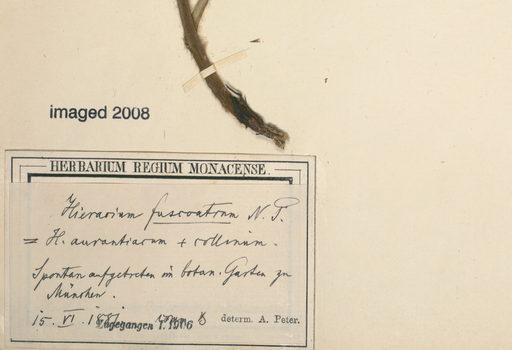 imaged 2008
HERBARIUM REGIUM MONACENSE.
Hieracium fuscoatrum N. P.
= H. aurantiacum + collinum.
Spontan aufgetreten im botan. Garten zu
München.
15. VI. 1881.
Zugegangen 1.1906
determ. A. Peter.